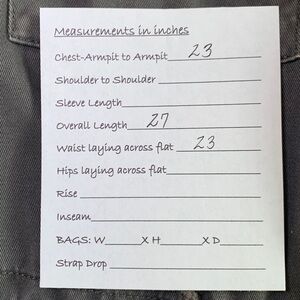 Measurements in inches
Chest-Armpit to Armpit 23
Shoulder to Shoulder
Sleeve Length
Overall Length 27
Waist laying across flat 23
Hips laying across flat
Rise
Inseam
BAGS: W X H X D
Strap Drop